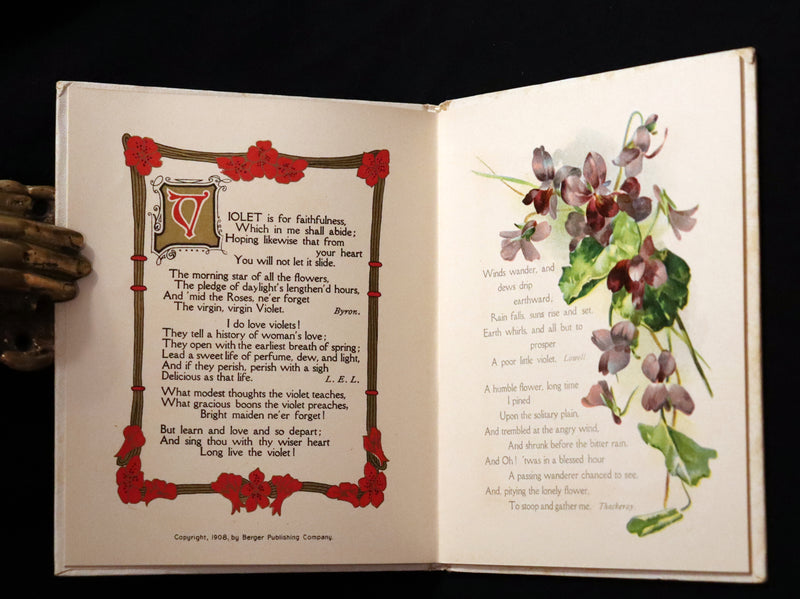 VIOLET is for faithfulness,
Which in me shall abide;
Hoping likewise that from
your heart
You will not let it slide.
The morning star of all the flowers,
The pledge of daylight's lengthen'd hours,
And 'mid the Roses, ne'er forget
The virgin, virgin Violet. Byron.
I do love violets!
They tell a history of woman's love;
They open with the earliest breath of spring;
Lead a sweet life of perfume, dew, and light,
And if they perish, perish with a sigh
Delicious as that life. L. E. L.
What modest thoughts the violet teaches,
What gracious boons the violet preaches,
Bright maiden ne'er forget!
But learn and love and so depart;
And sing thou with thy wiser heart
Long live the violet!
Copyright, 1908, by Berger Publishing Company.
Winds wander, and
dews drip
earthward;
Rain falls, suns rise and set,
Earth whirls, and all but to
prosper
A poor little violet. Lowell
A humble flower, long time
I pined
Upon the solitary plain,
And trembled at the angry wind,
And shrunk before the bitter rain,
And Oh! 'twas in a blessed hour
A passing wanderer chanced to see,
And, pitying the lonely flower,
To stoop and gather me. Thackeray